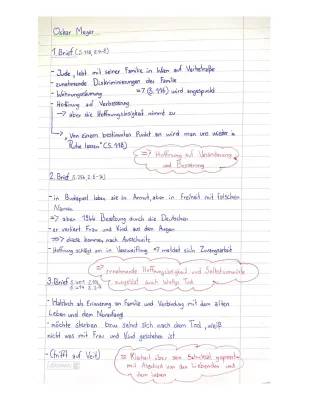 Oskar Meyer
1. Brief
- Jude, lebt mit seiner Familie in Wien auf
- zunehmende Diskriminierungen der Familie
- Wohnungsräumung => 7 (S. 116) wird angespuckt
- Hoffnung auf Verbesserung
→ aber die Hoffnungslosigkeit nimmt zu
→ "Von einem bestimmten Punkt an wird man uns wieder in
Ruhe lassen" (S. 118)
=> Hoffnung auf Veränderung
und Besserung
2. Brief
- in Budapest leben sie in Armut, aber in Freiheit mit falschen
Namen
=> aber 1944 Besetzung durch die Deutschen
- er verliert Frau und Kind aus den Augen
=> diese kommen nach Auschwitz
- Hoffnung schlägt um in Verzweiflung → meldet sich Zwangsarbeit
=> zunehmende Hoffnungslosigkeit und
ausgelöst auch Tod
3. Brief
- Halstuch als Erinnerung an Familie und Verbindung mit dem alten
Leben und dem Neuanfang
- möchte sterben bzw. sehnt sich nach dem Tod, weiß
nicht was mit Frau und Kind geschehen ist
- (trifft auf Veit)
= Klarheit über sein Schicksal
mit Abschied von den Liebenden und
dem Leben